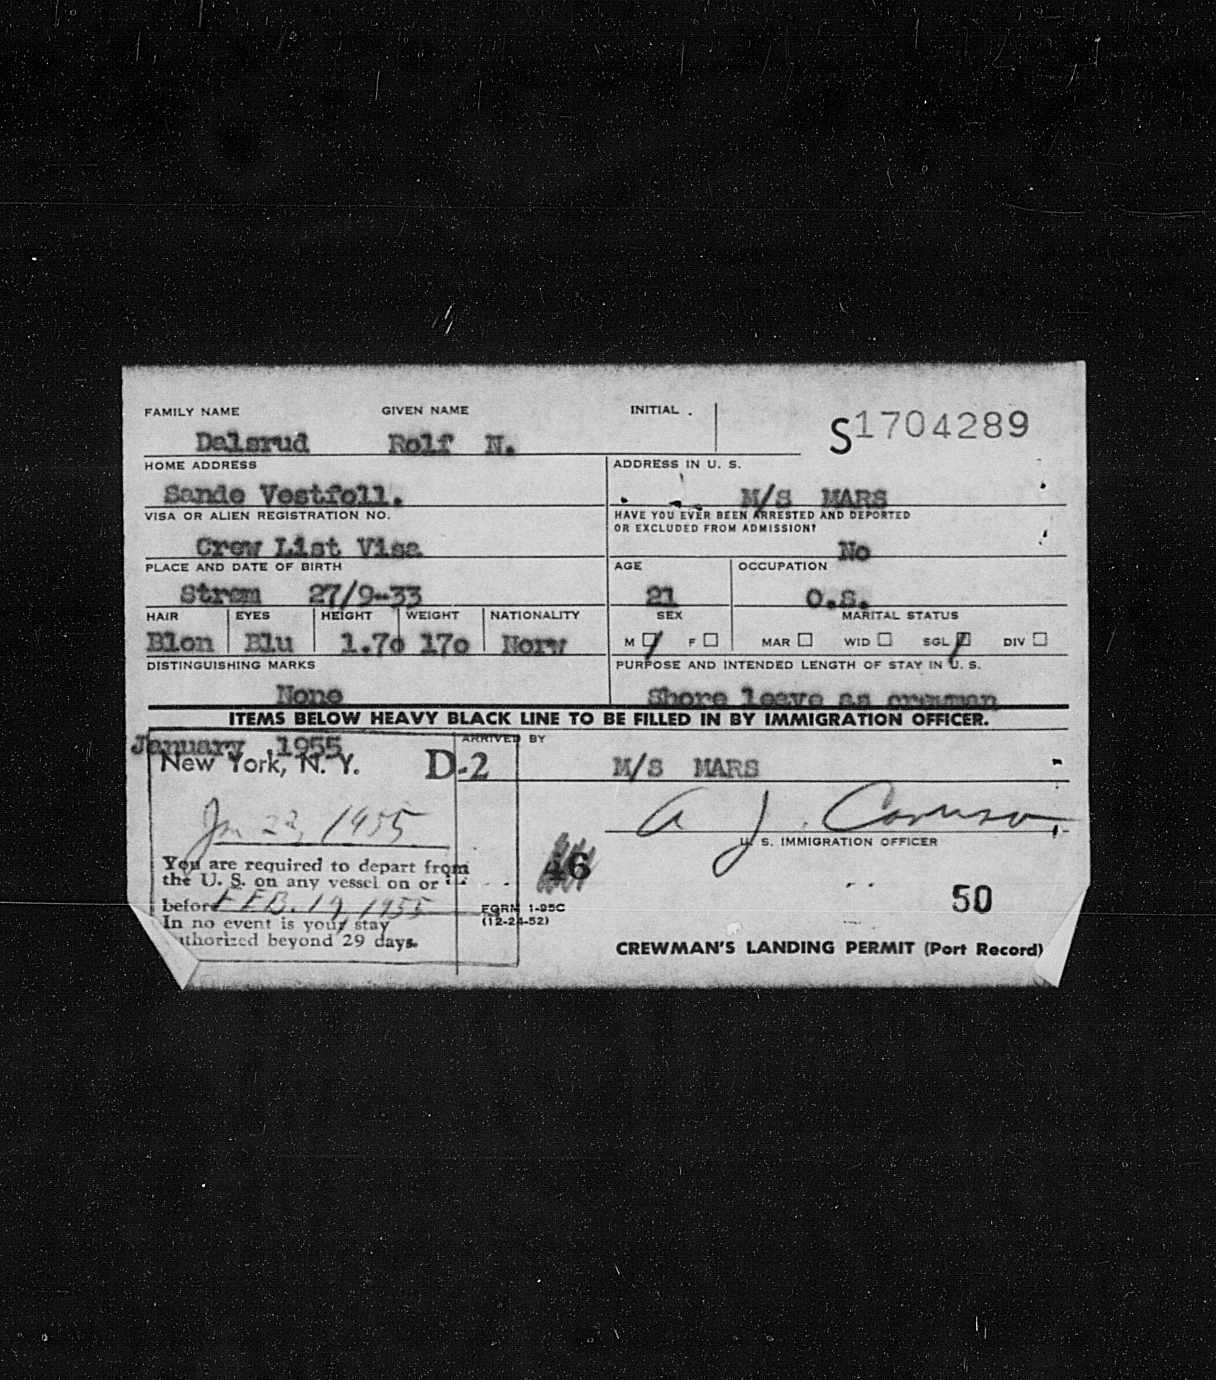 FAMILY NAME GIVEN NAME INITIAL .
S1704289
Dalsrud Rolf N.
HOME ADDRESS ADDRESS IN U. S.
Sande Vestfoll. M/S MARS
VISA OR ALIEN REGISTRATION NO. HAVE YOU EVER BEEN ARRESTED AND DEPORTED
OR EXCLUDED FROM ADMISSION?
Crew List Visa No
PLACE AND DATE OF BIRTH AGE OCCUPATION
Strøm 27/9-33 21 O.S.
HAIR EYES HEIGHT WEIGHT NATIONALITY SEX MARITAL STATUS
Blon Blu 1.70 170 Norw M F MAR WID SGL DIV
DISTINGUISHING MARKS PURPOSE AND INTENDED LENGTH OF STAY IN U. S.
None Shore leave as crewman
ITEMS BELOW HEAVY BLACK LINE TO BE FILLED IN BY IMMIGRATION OFFICER.
January ,1955 ARRIVED BY
New York, N. Y. D-2 M/S MARS
Jan 22, 1955 A J. Caruso
U. S. IMMIGRATION OFFICER
You are required to depart from
the U. S. on any vessel on or
46
50
before FEB. 19, 1955 FORM I-95C
In no event is your stay (12-24-52)
authorized beyond 29 days.
CREWMAN'S LANDING PERMIT (Port Record)